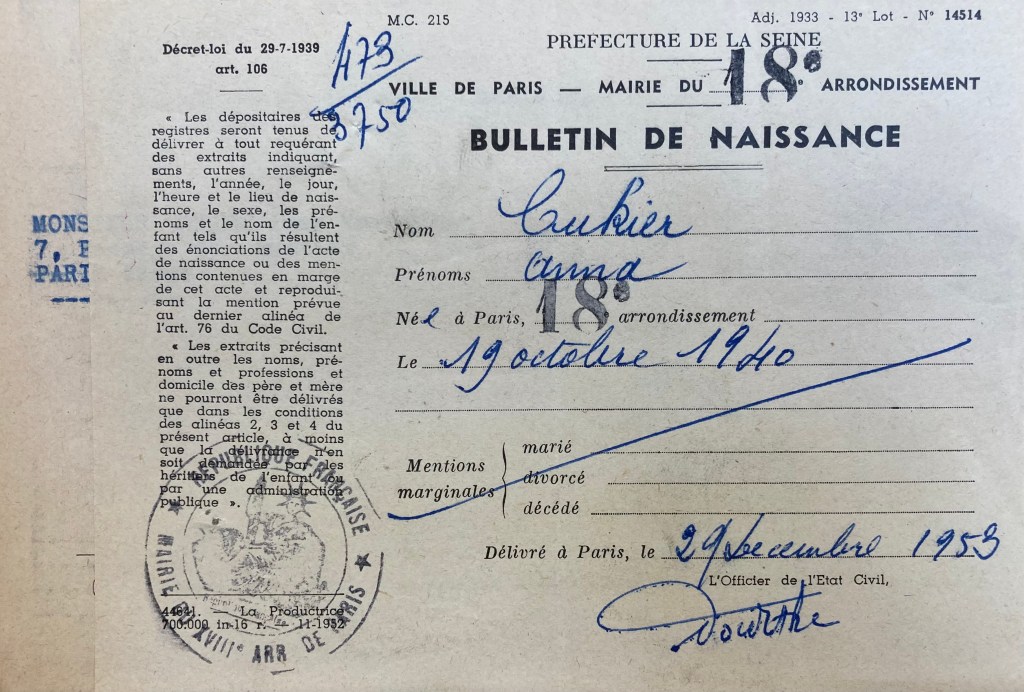 M.C. 215
Adj. 1933 - 13e Lot - N° 14514
Décret-loi du 29-7-1939
art. 106
473
3750
PREFECTURE DE LA SEINE
VILLE DE PARIS — MAIRIE DU 18e ARRONDISSEMENT
BULLETIN DE NAISSANCE
« Les dépositaires des
registres seront tenus de
délivrer à tout requérant
des extraits indiquant,
sans autres renseigne-
ments, l'année, le jour,
l'heure et le lieu de nais-
sance, le sexe, les pré-
noms et le nom de l'en-
fant tels qu'ils résultent
des énonciations de l'acte
de naissance ou des men-
tions contenues en marge
de cet acte et reprodui-
sant la mention prévue
au dernier alinéa de
l'art. 76 du Code Civil.
« Les extraits précisant
en outre les noms, pré-
noms et professions et
domicile des père et mère
ne pourront être délivrés
que dans les conditions
des alinéas 2, 3 et 4 du
présent article, à moins
que la délivrance n'en
soit demandée par les
héritiers de l'enfant ou
par une administration
publique ».
MONS
7,
PARI
Nom Cukier
Prénoms Anna
Née à Paris, 18e arrondissement
Le 19 octobre 1940
Mentions
marginales
marié
divorcé
décédé
Délivré à Paris, le 29 Decembre 1953
L'Officier de l'Etat Civil,
RÉPUBLIQUE FRANÇAISE
MAIRIE DU XVIIIe ARR DE PARIS
44641. — La Productrice
700.000 in-16 r. — 11-1952